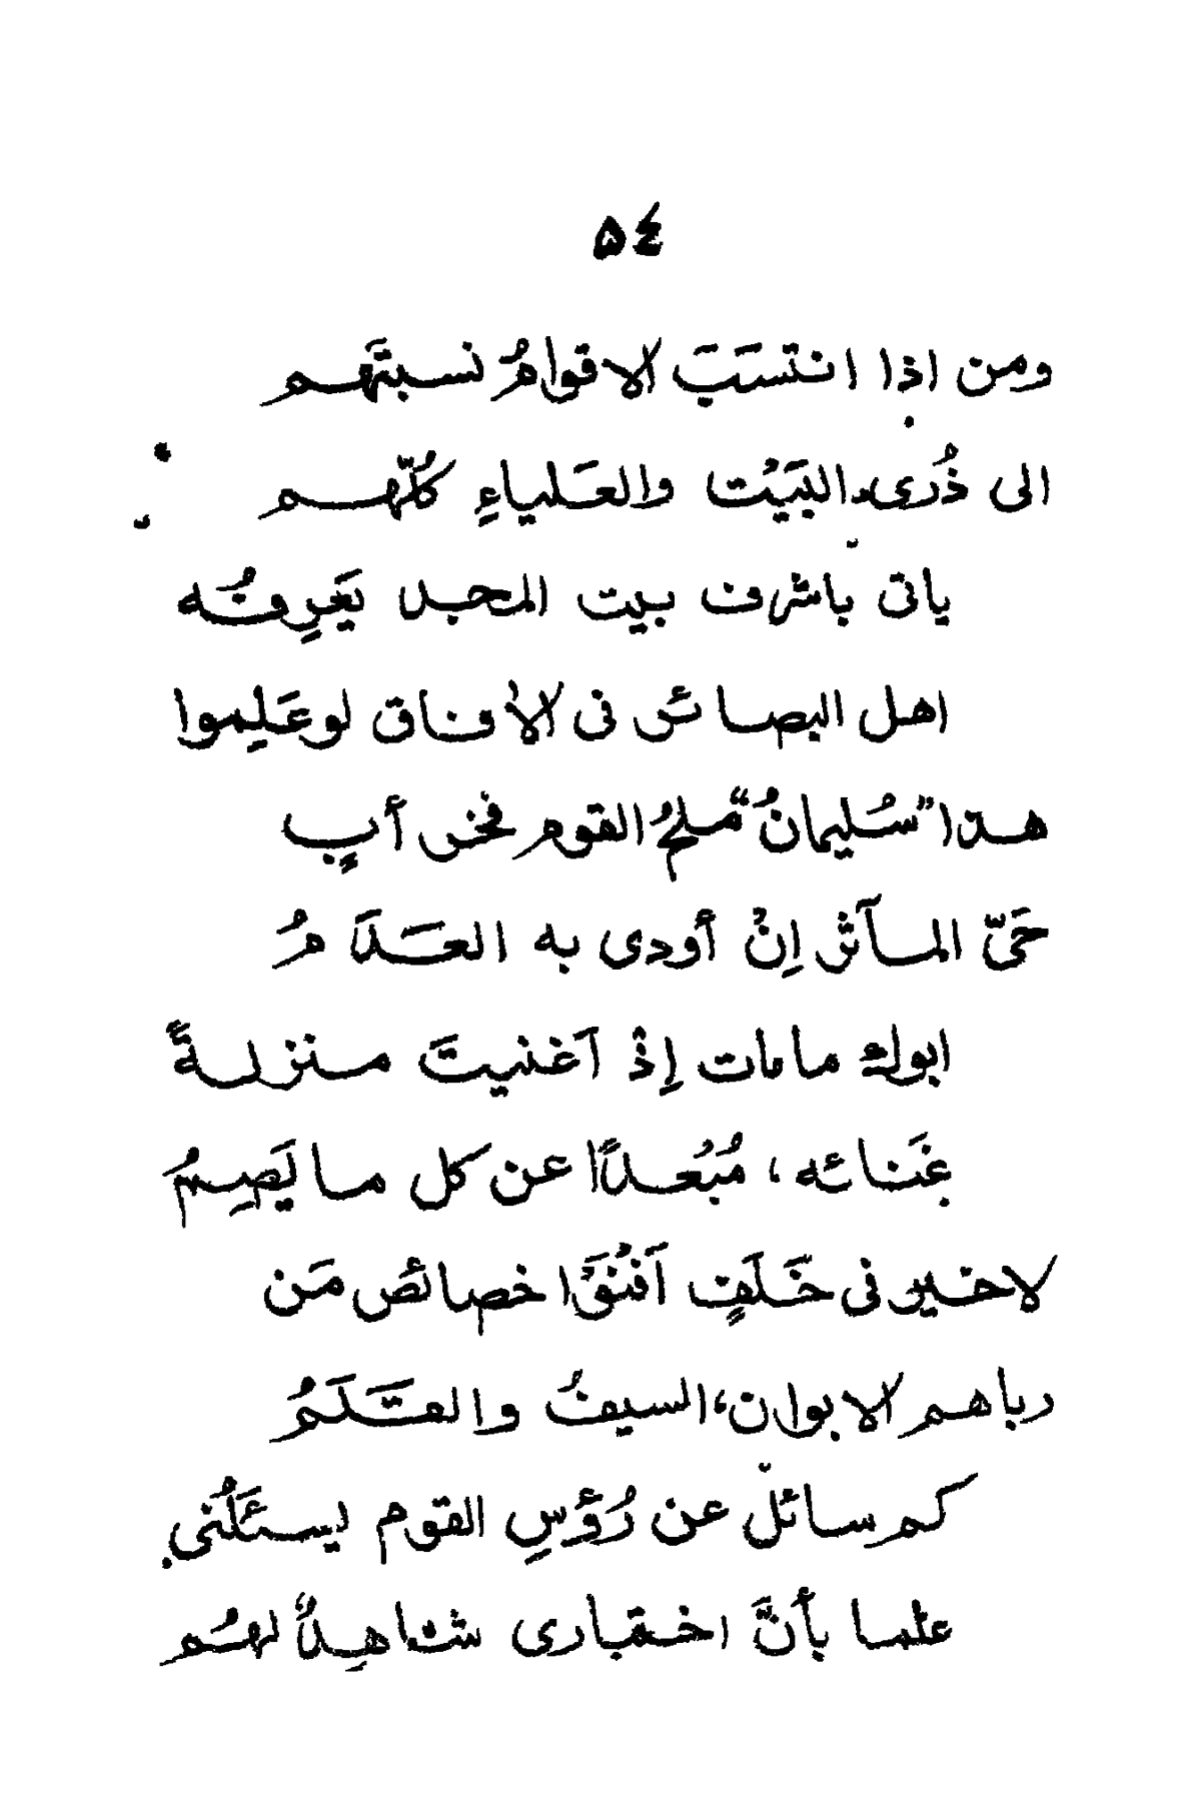 ٥٤
ومن اذا انتسبَ الاقوامُ نسبتَهم
الى ذُرى البَيْت والعَلياءِ كُلّهم
ياتى باشرف بيت المجد يَعرِفُه
اهل البصائر فى الأفاق لو عَلِموا
هذا "سُليمانُ" ملحُ القوم فخر أبٍ
حَىّ المآثر إنْ أودى به العَدَمُ
ابوك ما مات إذْ آغنيتَ منزلةً
غَنائه، مُبْعداً عن كل ما يَصِمُ
لا خير فى خَلَفٍ آفْنَوْا خصائص مَن
رباهم الابوان، السيفُ والقَلَمُ
كم سائل عن رُؤسِ القوم يسئَلُنى
علما بأنَّ اختبارى شاهِدٌ لهُم